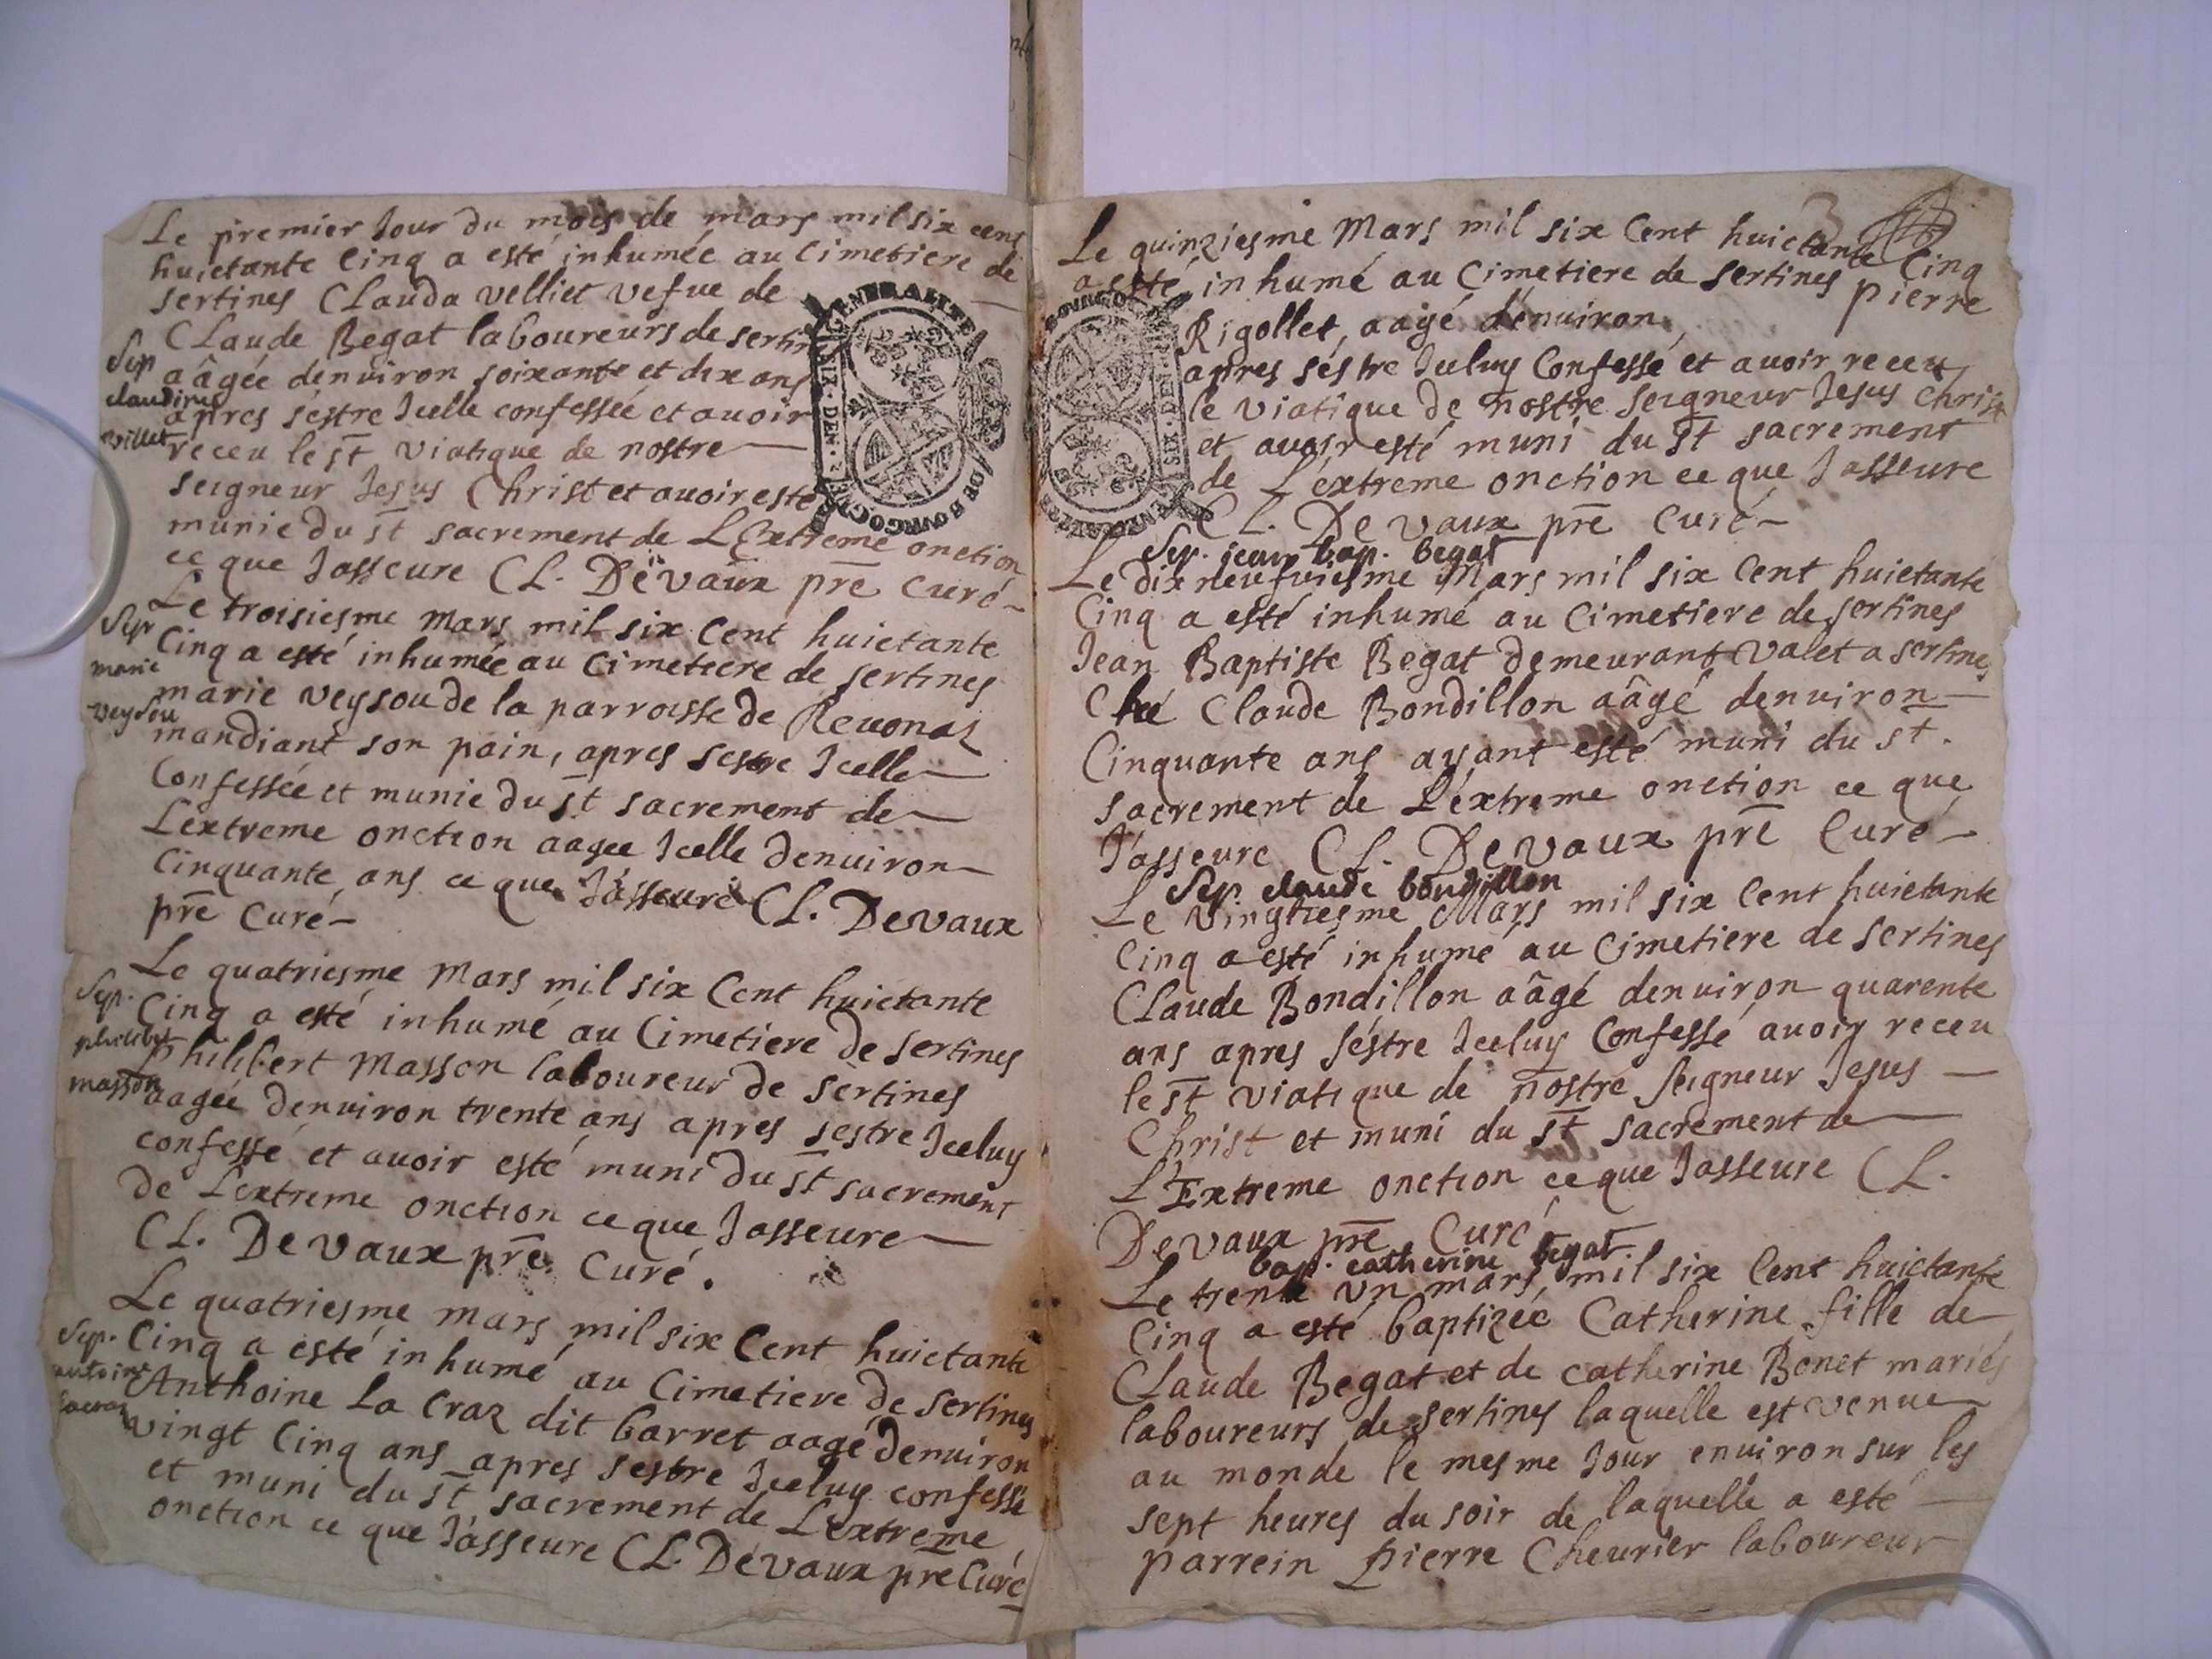 Le premier Jour du mois de mars mil six cens
huictante Cinq a esté inhumée au Cimetiere de
sertines Clauda velliet vefue de
Claude Begat laboureurs de sertin
Sep
claudine
villet
aâgée dénuiron soixante et dix ans
apres séstre Jcelle confessée et auoir
receu le st viatique de nostre
seigneur Jesus Christ et auoir esté
munie du st sacrement de LExtreme onction
ce que Jasseure CL. Devaux pre Curé
Le troisiesme mars mil six Cent huictante
Sep
marie
veysou
Cinq a esté inhumée au Cimetiere de sertines
marie veysou de la parroisse de Reuonas
mandiant son pain, apres sestre Jcelle
Confessée et munie du st sacrement de
Lextreme onction aagee Jcelle denuiron
Cinquante ans ce que Jásseure CL. Devaux
pre Curé
Le quatriesme Mars mil six Cent huictante
Sep.
philibert
masson
Cinq a esté inhumé au Cimetiere de sertines
philibert Masson laboureur de sertines
aagée denuiron trente ans apres sestre Jceluy
confessé et auoir esté muni du st sacrement
de Lextreme onction ce que Jasseure
CL. Devaux pre Curé.
Le quatriesme mars mil six Cent huictante
Sep.
antoine
lacraz
Cinq a esté inhumé au Cimetiere de sertines
Anthoine La Craz dit barret aagé denuiron
vingt Cinq ans apres sestre Jceluy confessé
et muni du st sacrement de Lextreme
onction ce que Jásseure CL. Devaux pre Curé
3
Le quinziesme Mars mil six Cent huictante Cinq
a esté inhumé au Cimetiere de sertines pierre
Rigollet, aagé dénuiron
apres séstre Jceluy Confessé et auoir receu
le viatique de nostre seigneur Jesus Christ
et auoir esté muni du st sacrement
de L'éxtreme onction ce que Jasseure
CL. Devaux pre Curé
Sep. jean bap. begat
Le dix neufuiesme Mars mil six Cent huictante
Cinq a esté inhumé au Cimetiere de sertines
Jean Baptiste Begat demeurant valet a sertines
Ché Claude Bondillon aâgé denuiron
Cinquante ans ayant esté muni du st.
sacrement de L'éxtreme onction ce que
J'asseure CL. Devaux pre Curé
Sep. claude bondillon
Le vingtiesme Mars mil six Cent huictante
Cinq a esté inhumé au Cimetiere de sertines
Claude Bondillon aâgé denuiron quarente
ans apres séstre Jceluy Confessé auoir receu
le st viatique de nostre seigneur Jesus
Christ et muni du st sacrement de
L'Extreme onction ce que Jasseure CL.
Devaux pre Curé
bap. catherine begat
Le trente un mars mil six Cent huictante
Cinq a esté baptizée Catherine fille de
Claude Begat et de catherine Bonet mariés
laboureurs de sertines laquelle est venue
au monde le mesme Jour enuiron sur les
sept heures du soir de laquelle a esté
parrein pierre Cheurier laboureur